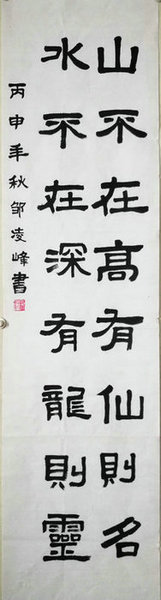 山不在高有仙則名
水不在深有龍則靈
丙申年秋邹凌峰書